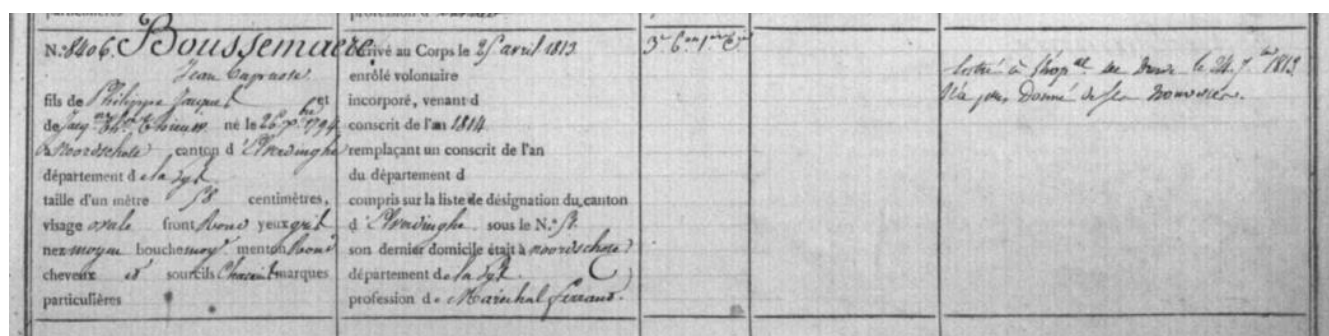 N.º 8406. Boussemaere.
Jean Baptiste
fils de Philippe Jacques et
de né le 26 7bre 1794
à Noordschote canton d'Elverdinghe
département de la Lys
taille d'un mètre 58 centimètres,
visage ovale front rond yeux gris
nez moyen bouche moy. menton rond
cheveux et sourcils marques
particulières
Arrivé au Corps le 25 avril 1813
enrôlé volontaire
incorporé, venant d
conscrit de l'an 1814
remplaçant un conscrit de l'an
du département d
compris sur la liste de désignation du canton
d'Elverdinghe sous le N.º
son dernier domicile était à noordschote
département de la Lys
profession de Maréchal ferrant.
3e
à l'hop.al de le 24 7bre 1813
N'a pas Donné de ses nouvelles.